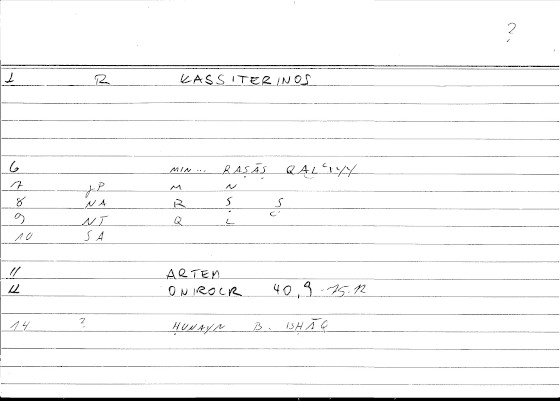 ?
1 R KASSITERINOS
6 MIN... RAṢĀṢ QALʿIYY
7 JP M N
8 NA R Ṣ Ṣ
9 NT Q L ʿ
10 SA
11 ARTEM
12 ONIROCR 40,9 -75.12
14 ? ḤUNAYN B. ISḤĀQ